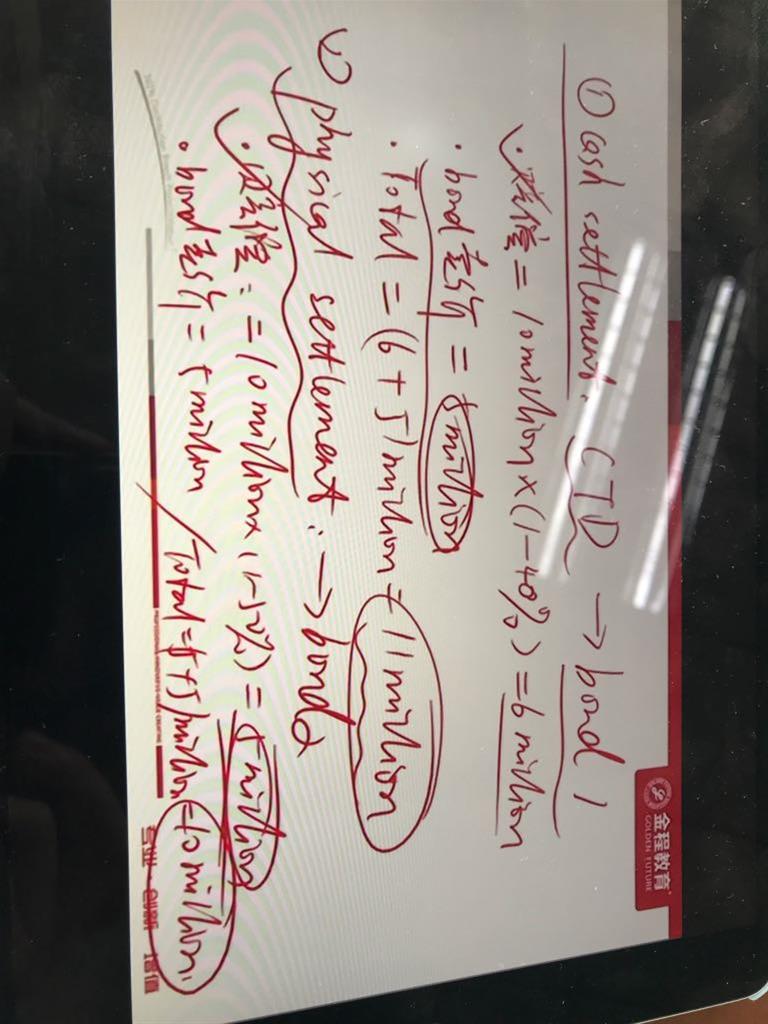 金程教育
GOLDEN FUTURE
① cash settlement: CTD → bond 1
· 赔偿 = 10 million × (1-40%) = 6 million
· bond 卖价 = 5 million
· Total = (6+5) million = 11 million
② physical settlement: → bond 2
· 赔偿: = 10 million × (1-50%) = 5 million
· bond 卖价 = 5 million / Total = 5+5 million = 10 million
专业·创新·增值